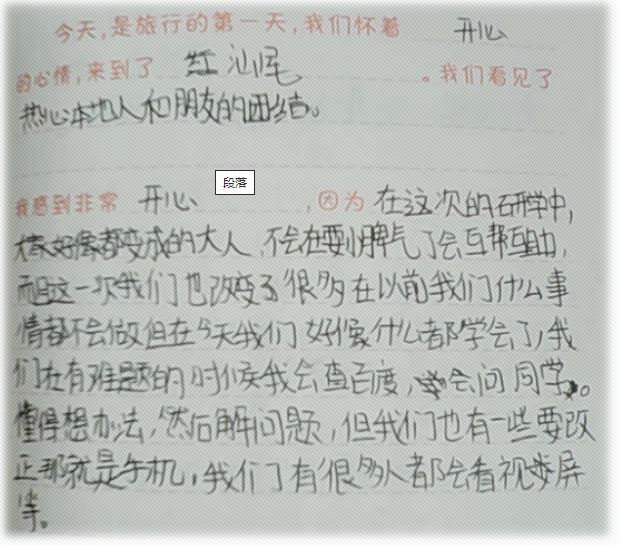 今天,是旅行的第一天,我们怀着 开心
的心情,来到了 红汕尾 。我们看见了
热心本地人和朋友的团结。
段落
我感到非常 开心 ,因为 在这次的研学中,
大家好像都变成的大人,不会在耍小脾气了会互帮互助,
而且这一次我们也改变了很多在以前我们什么事
情都不会做但在今天我们好像什么都学会了,我
们在有难题的时候我会查百度,会问同学。
懂得想办法,然后解问题,但我们也有一些要改
正那就是手机,我们有很多人都会看视频屏
等。